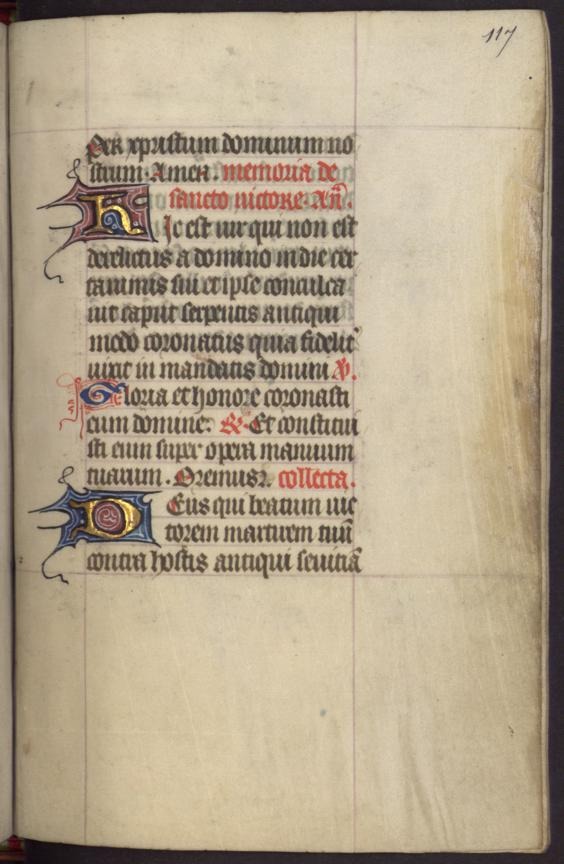 117
Per xpristum dominum no
strum. Amen. memoria de
sancto victore. An̄.
Hic est vir qui non est
derelictus a domino in die cer
taminis sui et ipse conculca
uit caput serpentis antiqui
modo coronatus quia fidelit̾
uixit in mandatis domini ℣.
Gloria et honore coronasti
eum domine. ℟. Et constitui
sti eum super opera manuum
tuarum. Oremus. collecta.
Deus qui beatum uic
torem martirem tuū
contra hostis antiqui seuiciā